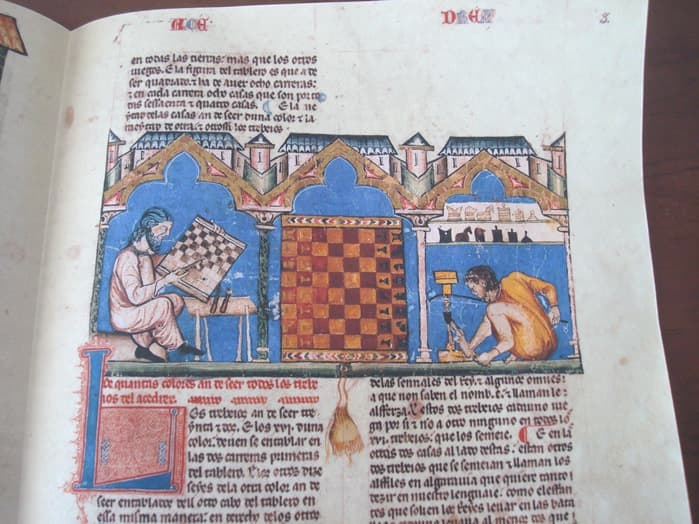 ACE
DREX
3.
en todas las tierras: mas que los otros
iuegos. E la figura del tablero es que a de
ser quadrado. & ha de auer ocho carreras:
& en cada carrera ocho casas que son por to
das sessaenta & quatro casas. E la me
ytad delas casas an de seer duna color & la
meytad de otra. & otrossi los trebeios
De quantas colores an de seer todos los trebe
ios del acedrex.
Los trebeios an de seer tre
ynta & dos. E los .xvi. duna
color. deuen se entablar en
las dos carreras primeras
del tablero. E los otros dize
seyes dela otra color an de
seer entablados dell otro cabo del tablero en
essa misma manera. en derecho delos otros
delas sennales del Rey. & algunos omnes:
a que non saben el nombre. & llaman le
alfferza. E estos dos trebeios cadauno iue
ga por si & no a otro ninguno en todos los
.xvi. trebeios. que los semeie. E en las
otras dos casas al lado destas: estan otros
dos trebeios que se semeian & llaman los
alffiles en algarauia que quiere tanto
dezir en nuestro lenguaie. como eleffan
tes que solien los Reyes leuar en las bata